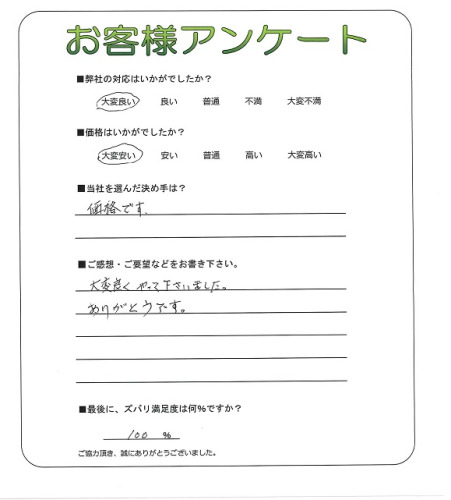 お客様アンケート
■弊社の対応はいかがでしたか？
大変良い 良い 普通 不満 大変不満
■価格はいかがでしたか？
大変安い 安い 普通 高い 大変高い
■当社を選んだ決め手は？
価格です。
■ご感想・ご要望などをお書き下さい。
大変良くやって下さいました。
ありがとうです。
■最後に、ズバリ満足度は何％ですか？
100 ％
ご協力頂き、誠にありがとうございました。